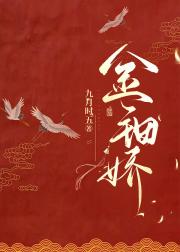 金钿娇
九月时五著